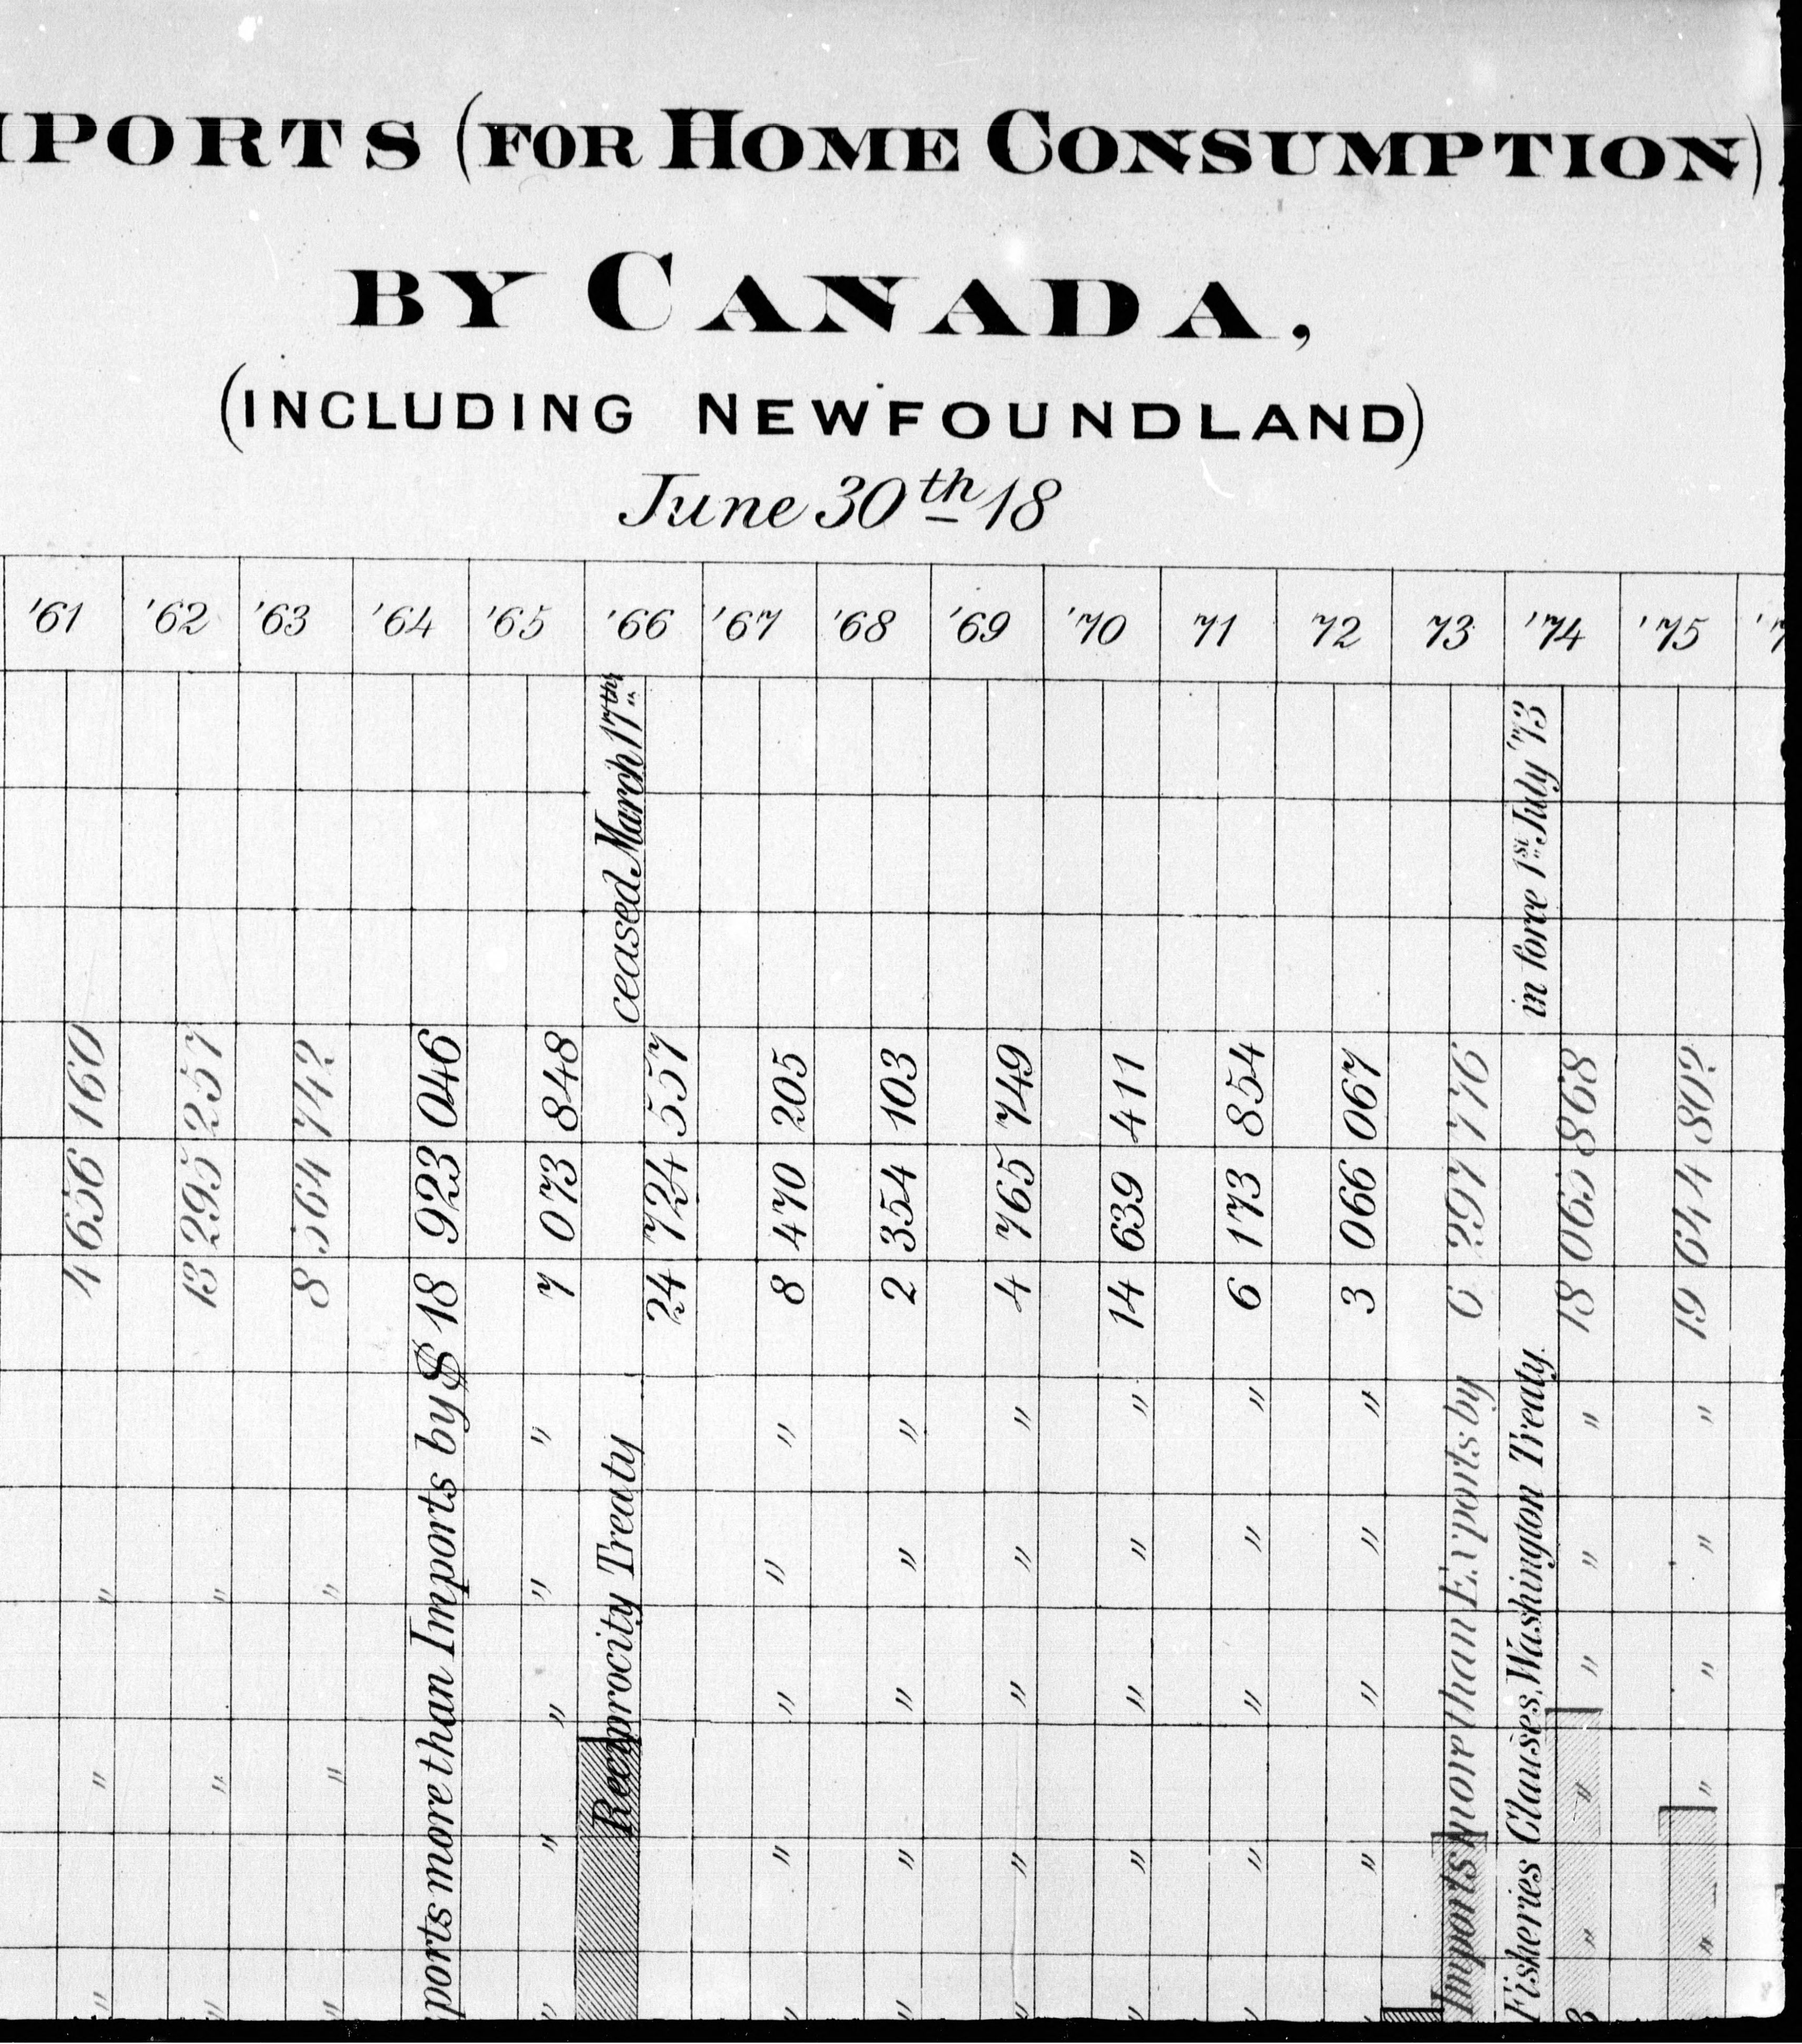 MPORTS (FOR HOME CONSUMPTION)
BY CANADA,
(INCLUDING NEWFOUNDLAND)
June 30th 18
'61 '62 '63 '64 '65 '66 '67 '68 '69 '70 '71 72 73 '74 '75 '7
4 656 160
13 295 257
8 564 742
ports more than Imports by $ 18 923 046
" " " " " 7 073 848
Reciprocity Treaty ceased March 17th
24 724 557
" " " " " 8 470 205
" " " " " 2 354 103
" " " " " 4 765 749
" " " " " 14 639 411
" " " " " 6 173 854
" " " " " 3 066 067
Imports more than Exports by 6 297 776
Fisheries Clauses, Washington Treaty. in force 1st July '73
" " " " " 18 065 868
" " " " " 19 644 802